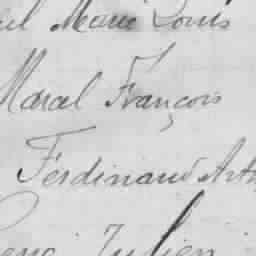 Marie Louis
Marcel François
Ferdinand Arth
Julien